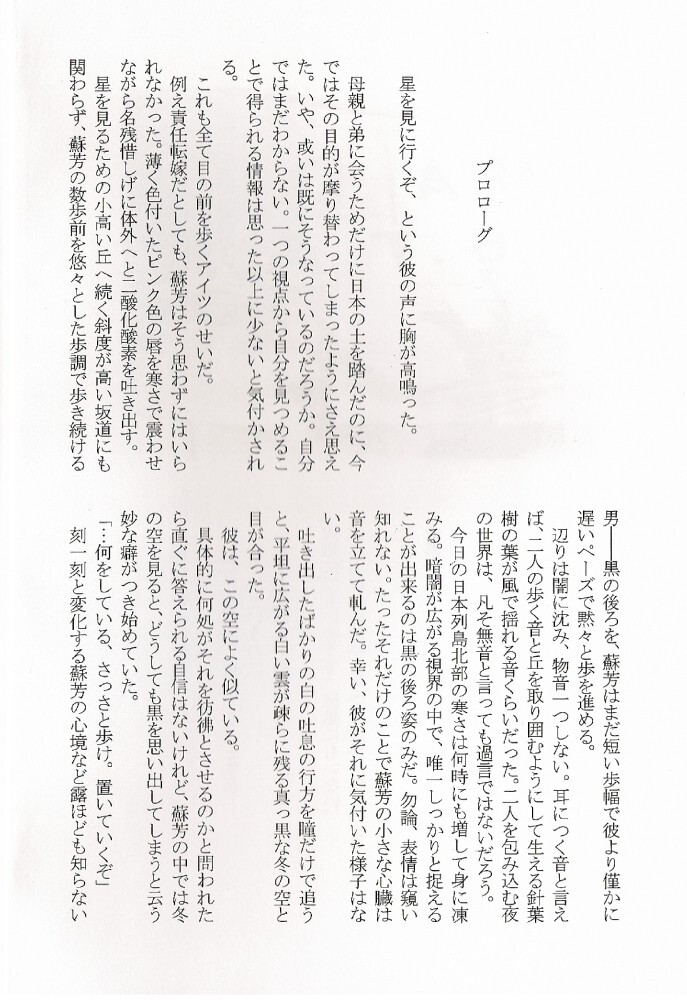 プロローグ
星を見に行くぞ、という彼の声に胸が高鳴った。
母親と弟に会うためだけに日本の土を踏んだのに、今
ではその目的が摩り替わってしまったようにさえ思え
た。いや、或いは既にそうなっているのだろうか。自分
ではまだわからない。一つの視点から自分を見つめるこ
とで得られる情報は思った以上に少ないと気付かされ
る。
これも全て目の前を歩くアイツのせいだ。
例え責任転嫁だとしても、蘇芳はそう思わずにはいら
れなかった。薄く色付いたピンク色の唇を寒さで震わせ
ながら名残惜しげに体外へと二酸化酸素を吐き出す。
星を見るための小高い丘へ続く斜度が高い坂道にも
関わらず、蘇芳の数歩前を悠々とした歩調で歩き続ける
男――黒の後ろを、蘇芳はまだ短い歩幅で彼より僅かに
遅いペースで黙々と歩を進める。
辺りは闇に沈み、物音一つしない。耳につく音と言え
ば、二人の歩く音と丘を取り囲むようにして生える針葉
樹の葉が風で揺れる音くらいだった。二人を包み込む夜
の世界は、凡そ無音と言っても過言ではないだろう。
今日の日本列島北部の寒さは何時にも増して身に凍
みる。暗闇が広がる視界の中で、唯一しっかりと捉える
ことが出来るのは黒の後ろ姿のみだ。勿論、表情は窺い
知れない。たったそれだけのことで蘇芳の小さな心臓は
音を立てて軋んだ。幸い、彼がそれに気付いた様子はな
い。
吐き出したばかりの白の吐息の行方を瞳だけで追う
と、平坦に広がる白い雲が疎らに残る真っ黒な冬の空と
目が合った。
彼は、この空によく似ている。
具体的に何処がそれを彷彿とさせるのかと問われた
ら直ぐに答えられる自信はないけれど、蘇芳の中では冬
の空を見ると、どうしても黒を思い出してしまうと云う
妙な癖がつき始めていた。
「…何をしている、さっさと歩け。置いていくぞ」
刻一刻と変化する蘇芳の心境など露ほども知らない